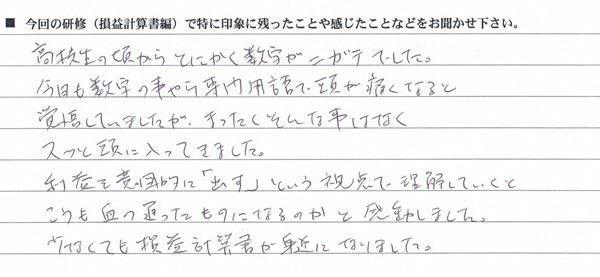 ■ 今回の研修（損益計算書編）で特に印象に残ったことや感じたことなどをお聞かせ下さい。
高校生の頃からとにかく数字がニガテでした。
今日も数字の事やら専門用語で頭が痛くなると
覚悟していましたが、まったくそんな事はなく
スッと頭に入ってきました。
利益を意図的に「出す」という視点で理解していくと
こうも血の通ったものになるのかと感動しました。
少なくても損益計算書が身近になりました。